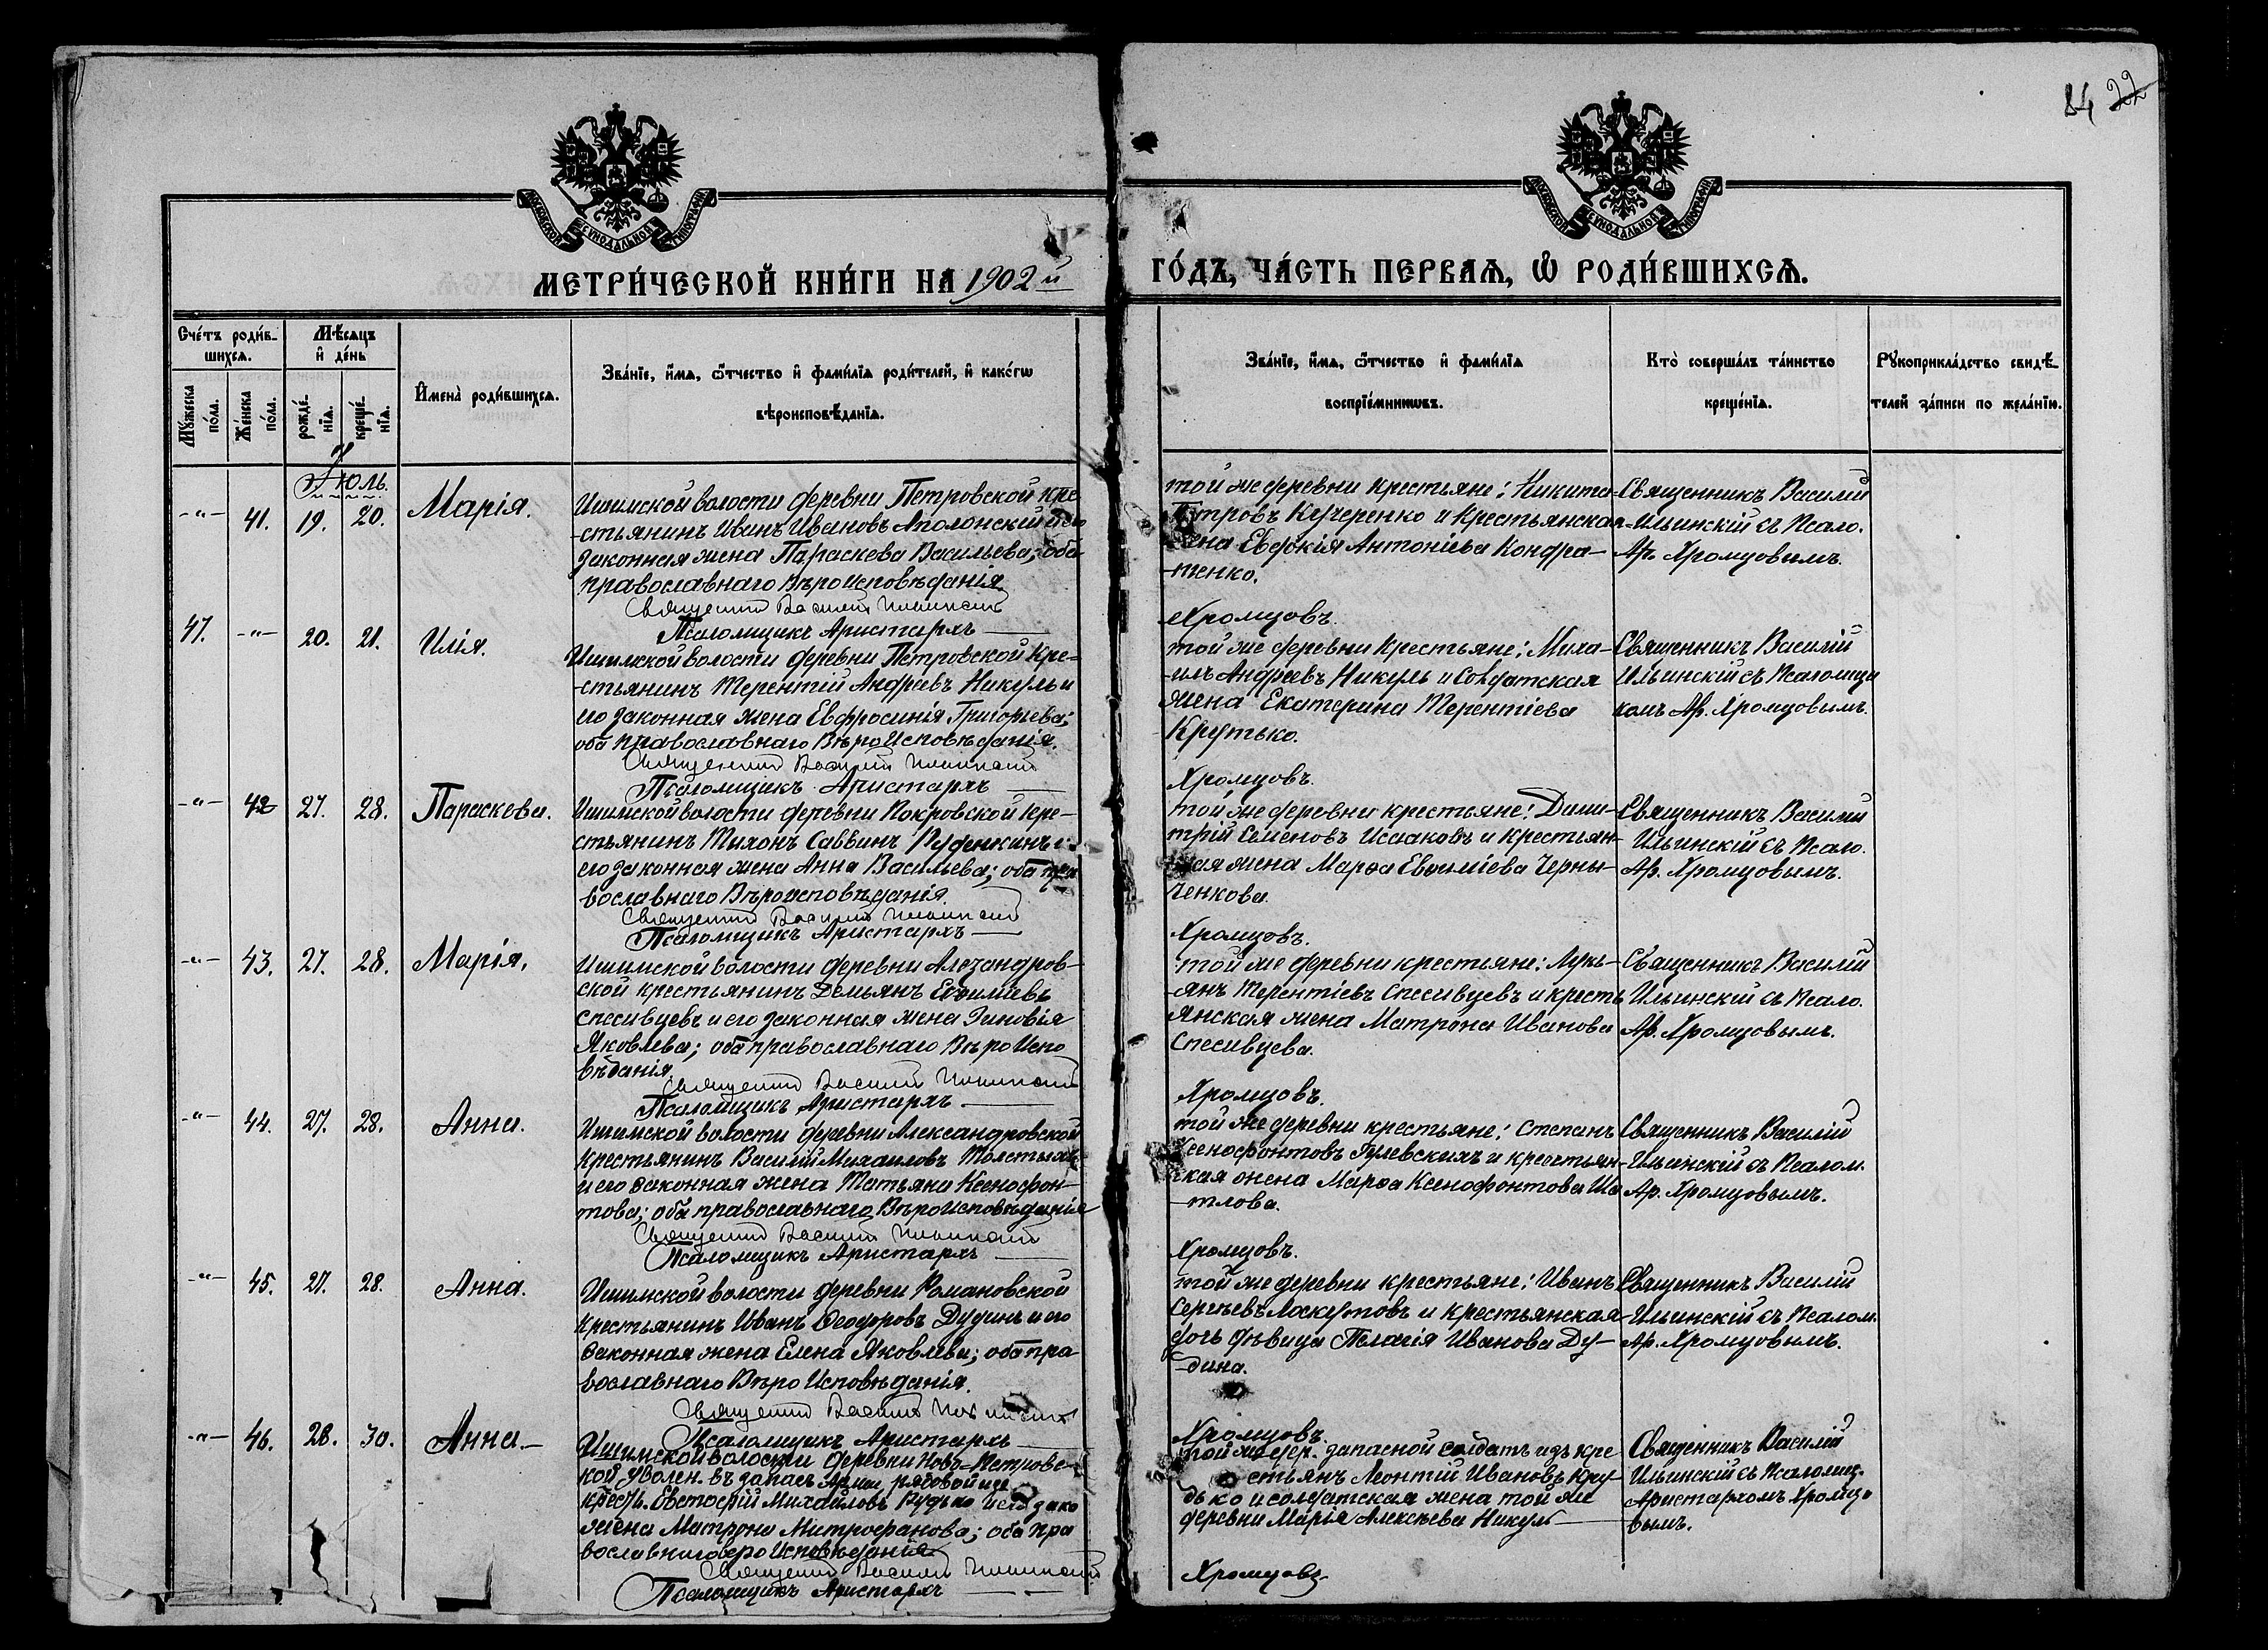 84 22
МОСКОВСКОЙ СѴНОДАЛЬНОЙ ТИПОГРАФІИ
МОСКОВСКОЙ СѴНОДАЛЬНОЙ ТИПОГРАФІИ
МЕТРИ́ЧЕСКОЙ КНИ́ГИ НА 1902й ГО́ДЪ, ЧА́СТЬ ПЕРВАѦ, Ѿ РОДИ́ВШИХСѦ.
Сче́тъ роди́в-
шихсѧ.
Мꙋ́жеска по́ла.
Же́нска по́ла.
Мѣ́сѧцъ
и҆ де́нь
рожде́-нїѧ.
креще́-нїѧ.
И҆мена̀ роди́вшихсѧ.
Зва́нїе, и҆́мѧ, ѻ҆́тчество и҆ фами́лїѧ роди́телей, и҆ како́гѡ
вѣроисповѣ́данїѧ.
Зва́нїе, и҆́мѧ, ѻ҆́тчество и҆ фами́лїѧ
воспрїе́мникѡвъ.
Кто̀ соверша́лъ та́инство
креще́нїѧ.
Рꙋкоприкла́дство свидѣ́-
телей за́писи по жела́нїю.
Іюль.
-"- 41. 19. 20. Марія.
Ишимской волости деревни Петровской кре-
-стьянинъ Иванъ Ивановъ Аполонскій и его
законная жена Параскева Васильева; оба
православнаго Вѣроисповѣданія.
Священникъ Василій Ильинскій
Псаломщикъ Аристархъ —
той же деревни крестьяне: Никита
Петровъ Кучеренко и крестьянская
жена Евдокія Антоніева Кондра-
-тенко.
Хромцовъ.
Священникъ Василій
Ильинскій съ Псало.
Ар. Хромцовымъ.
47. -"- 20. 21. Илія.
Ишимской волости деревни Петровской Кре-
-стьянинъ Терентій Андреевъ Никуль и
его законная жена Евфросинія Григорьева;
оба православнаго ВѣроИсповѣданія.
Священникъ Василій Ильинскій
Псаломщикъ Аристархъ —
той же деревни Крестьяне: Миха-
-илъ Андреевъ Никуль и Солдатская
жена Екатерина Терентіева
Крутько.
Хромцовъ.
Священникъ Василій
Ильинскій съ Псаломщи
комъ Ар. Хромцовымъ.
-"- 42 27. 28. Параскева.
Ишимской волости деревни Покровской кре-
стьянинъ Тихонъ Саввинъ Руденкинъ и
его законная жена Анна Васильева; оба пра
вославнаго Вѣроисповѣданія.
Священникъ Василій Ильинскій
Псаломщикъ Аристархъ —
той же деревни крестьяне: Дими-
трій Семеновъ Исааковъ и крестьян-
ская жена Марѳа Евѳиміева Черны-
ченкова.
Хромцовъ.
Священникъ Василій
Ильинскій съ Псало.
Ар. Хромцовымъ.
-"- 43. 27. 28. Марія.
Ишимской волости деревни Алезандров-
ской крестьянинъ Демьянъ Евѳиміевъ
Спесивцевъ и его законная жена Зиновія
Яковлева; оба православнаго ВѣроИспо
вѣданія.
Священникъ Василій Ильинскій
Псаломщикъ Аристархъ —
той же деревни крестьяне: Лукь-
-янъ Терентіевъ Спесивцевъ и кресть
янская жена Матрона Иванова
Спесивцева.
Хромцовъ.
Священникъ Василій
Ильинскій съ Псало.
Ар. Хромцовымъ.
-"- 44. 27. 28. Анна.
Ишимской волости деревни Александровской
крестьянинъ Василій Михаиловъ Толстыхъ
и его законная жена Татьяна Ксенофон-
това; оба православнаго Вѣроисповѣданія
Священникъ Василій Ильинскій
Псаломщикъ Аристархъ —
той же деревни крестьяне: Степанъ
Ксенофонтовъ и крестьян-
ская жена Марѳа Ксенофонтова Ша
-тлова.
Хромцовъ.
Священникъ Василій
Ильинскій съ Псалом.
Ар. Хромцовымъ.
-"- 45. 27. 28. Анна.
Ишимской волости деревни Романовской
крестьянинъ Иванъ Ѳеодоровъ Дудинъ и его
законная жена Елена Яковлева; оба пра-
вославнаго ВѣроИсповѣданія.
Священникъ Василій Ильинскій
Псаломщикъ Аристархъ —
той же деревни крестьяне: Иванъ
Сергѣевъ Лоскутовъ и крестьянская
дочь дѣвица Пелагія Иванова Ду-
-дина.
Хромцовъ.
Священникъ Василій
Ильинскій съ Псалом.
Ар. Хромцовымъ.
-"- 46. 28. 30. Анна.—
Ишимской волости деревни Ново-Петровс-
кой уволен. въ запасъ Арміи рядовой изъ
крест. Евстафій Михайловъ Рудько и его зако
жена Матрона Митрофанова; оба пра
вославнаго вѣроИсповѣданія
Священникъ Василій Ильинскій
Псаломщикъ Аристархъ —
той же дер. запасной солдатъ изъ кре
стьянъ Леонтій Ивановъ Кру-
дько и солдатская жена той же
деревни Марія Алексѣева Никуль —
Хромцовъ
Священникъ Василій
Ильинскій съ Псаломщ.
Аристархомъ Хромцо
вымъ.